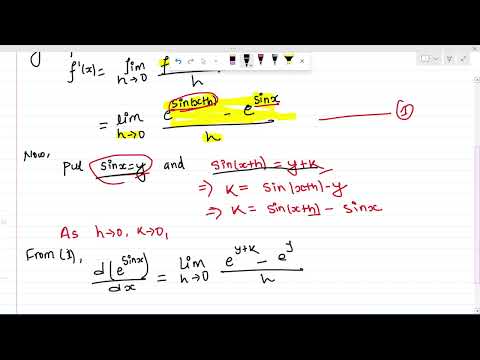 f'(x) = lim h→0 f h
= lim h→0 e^sin(x+h) - e^sinx h ——— (1)
Now, put sinx = y and sin(x+h) = y+k
⇒ k = sin(x+h) - y
⇒ k = sin(x+h) - sinx
As h→0, k→0,
From (1), d(e^sinx) dx = lim h→0 e^y+k - e^y h